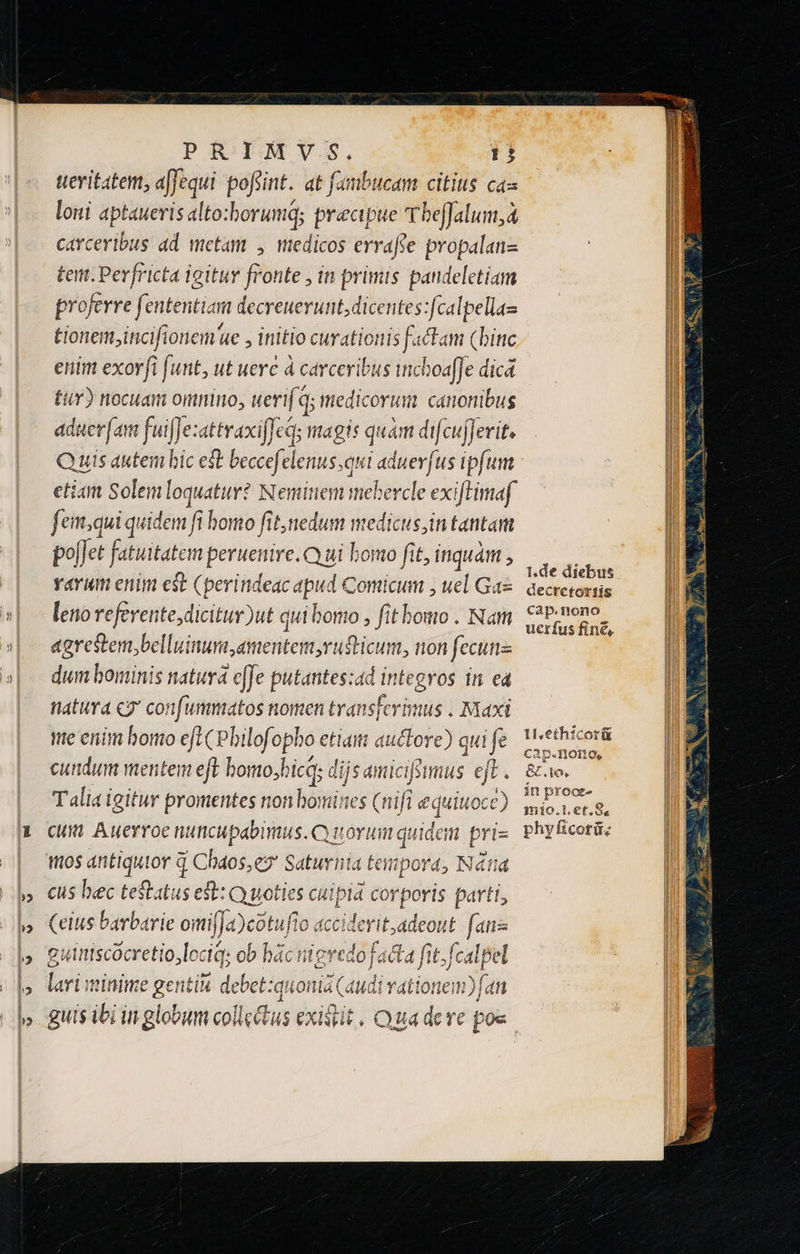 PRIMVS. 13
ueritatem, assequi possint. at sambucam citius ca=
loni aptaueris alto:horumq; præcipue Thessalum,à
carceribus ad metam , medicos errasse propalan=
tem. Perfricta igitur fronte , in primis pandeletiam
proferre sententiam decreuerunt,dicentes:scalpella=
tionem,incisionem´ue , initio curationis factam (hinc
enim exorsi sunt, ut uere à carceribus inchoasse dicã
tur) nocuam omnino, uerisq; medicorum canonibus
aduersam fuisse:attraxisseq; magis quàm discusserit.
Quis autem hic est becceselenus,qui aduersus ipsum
etiam Solem loquatur? Neminem mehercle existimas
sem,qui quidem si homo sit,nedum medicus,in tantam
posset fatuitatem peruenire. Qui homo sit, inquàm ,
rarum enim est (perindeac apud Comicum , uel Ga=
leno referente,dicitur)ut qui homo , sit homo . Nam
agrestem,belluinum,amentem,rusticum, non secun=
dum hominis naturã esse putantes:ad integros in ea
natura & consummatos nomen transferimus . Maxi
me enim homo est(Philosopho etiam auctore) qui se
cundum mentem est homo,hicq; dijs amicissimus est .
Talia igitur promentes non homines (nisi æquiuocè)
cum Auerroe nuncupabimus. Quorum quidem pri=
mos antiquior q̃ Chaos,& Saturnia tempora, Nãna
cus hæc testatus est: Quoties cuipiã corporis parti,
(eius barbarie omissa)cõtusio acciderit,adeout san=
guiniscõcretio,lociq; ob hãc nigredo facta sit,scalpel
lari minime gentiũ debet:quoniã (audi rationem)san
guis ibi in globum collectus existit , Qua de re poe
1.de diebus
decretoriis
cap.nono
uersus finẽ,
11.ethicorũ
cap.nono,
&.10.
in prooe-
mio.1.et.8.
physicorũ;